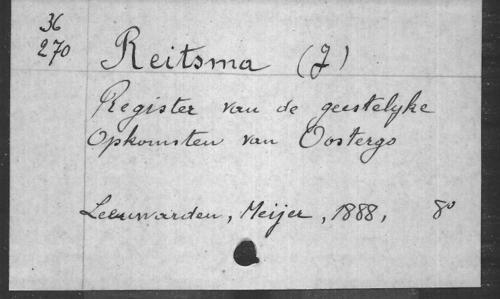 36
270
Reitsma (J)
Register van de geestelyke
Opkomsten van Oostergo
Leeuwarden, Meijer, 1888, 8º